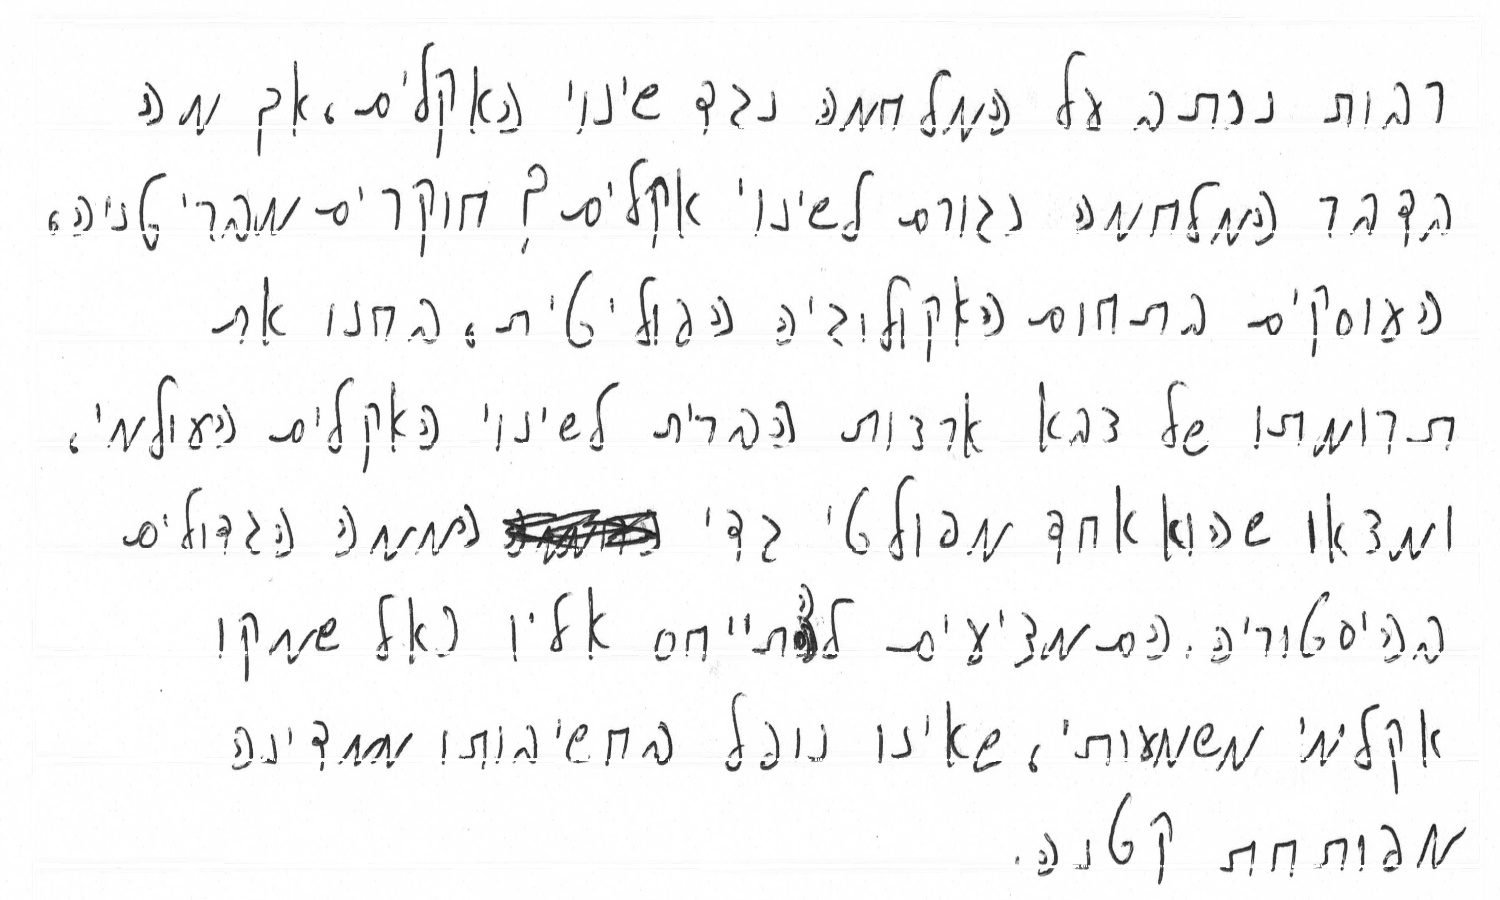 רבות נכתב על המלחמה נגד שינוי האקלים, אך מה
בדבר המלחמה גורם לשינוי אקלים? חוקרים מבריטניה,
העוסקים בתחום האקולוגיה הפוליטית, בחנו את
תרומתו של צבא ארצות הברית לשינוי האקלים העולמי,
ומצאו שהוא אחד מפולטי גדי החממה הגדולים
בהיסטוריה. הם מציעים להתייחס אליו כאל שחקן
אקלימי משמעותי, שאינו נופל בחשיבותו ממדינה
מפותחת קטנה.